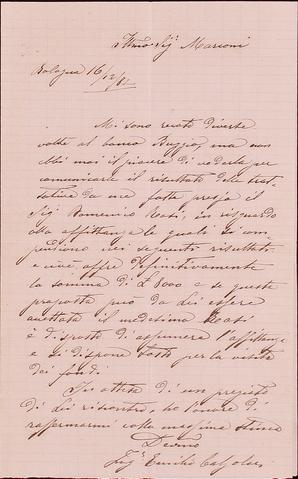 Illmo Sigr Marconi
Bologna 16/12/82
Mi sono recato diverse
volte al banco ma non
ebbi mai il piacere di vederla per
comunicarle il risultato delle trat-
tative da me fatte presso il
Sigr Domenico Rosti, in riguardo
alla affittanza le quali si com-
pendiano nei seguenti risultati
e cioè offre definitivamente
la somma di 8000 e se questa
proposta può da Lei essere
accettata il medesimo Rosti
è disposto di assumere l'affittanza
e si dispone tosto per la visita
dei fondi.
In attesa di un pregiato
di Lei riscontro, ho l'onore di
raffermarmi colla massima stima
Devmo
Emilio